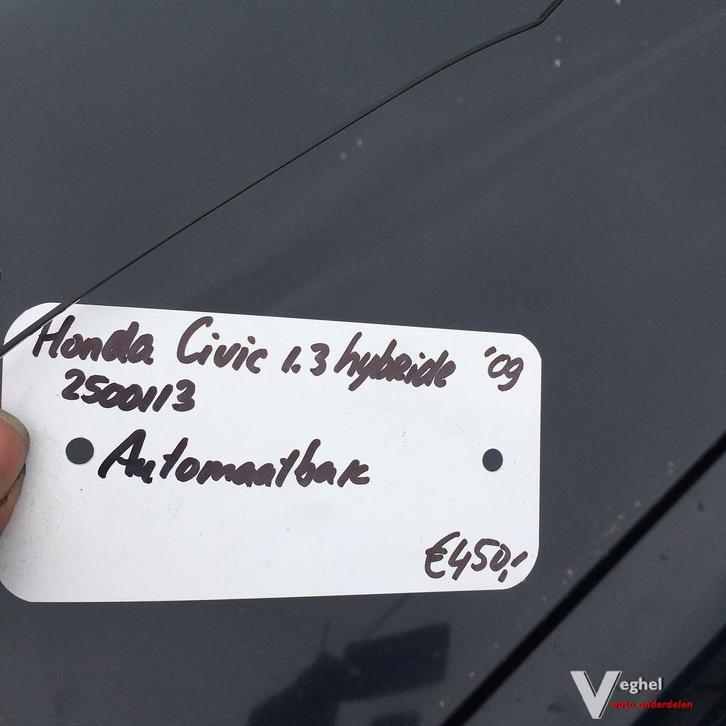 Honda Civic 1.3 hybride '09
2500113
Automaatbak
€450,-
Veghel
auto onderdelen